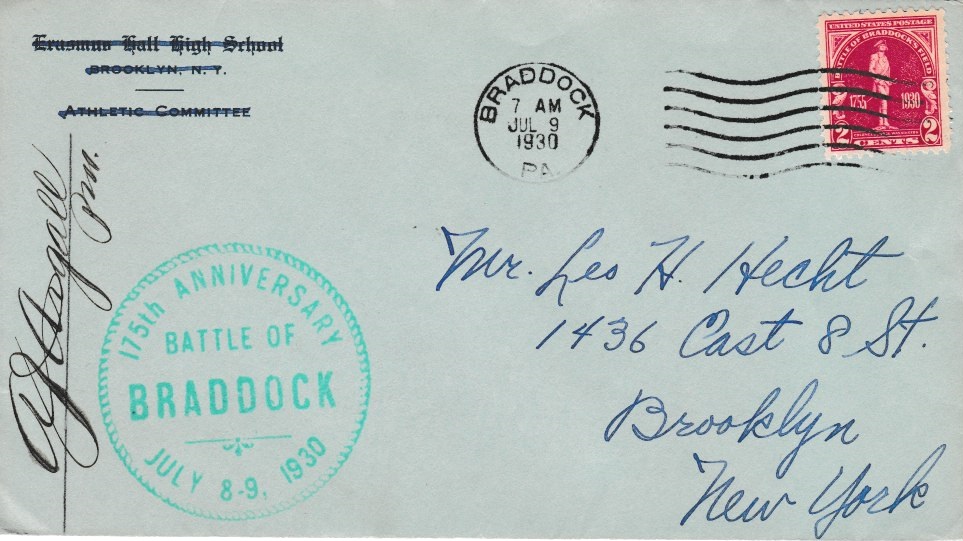 Erasmus Hall High School
BROOKLYN, N. Y.
ATHLETIC COMMITTEE
BRADDOCK
7 AM
JUL 9
1930
PA.
UNITED STATES POSTAGE
BATTLE OF BRADDOCK'S FIELD
1755 1930
2 CENTS 2
P.M.
175th ANNIVERSARY
BATTLE OF
BRADDOCK
JULY 8-9, 1930
Mr. Leo H. Hecht
1436 East 8 St.
Brooklyn
New York